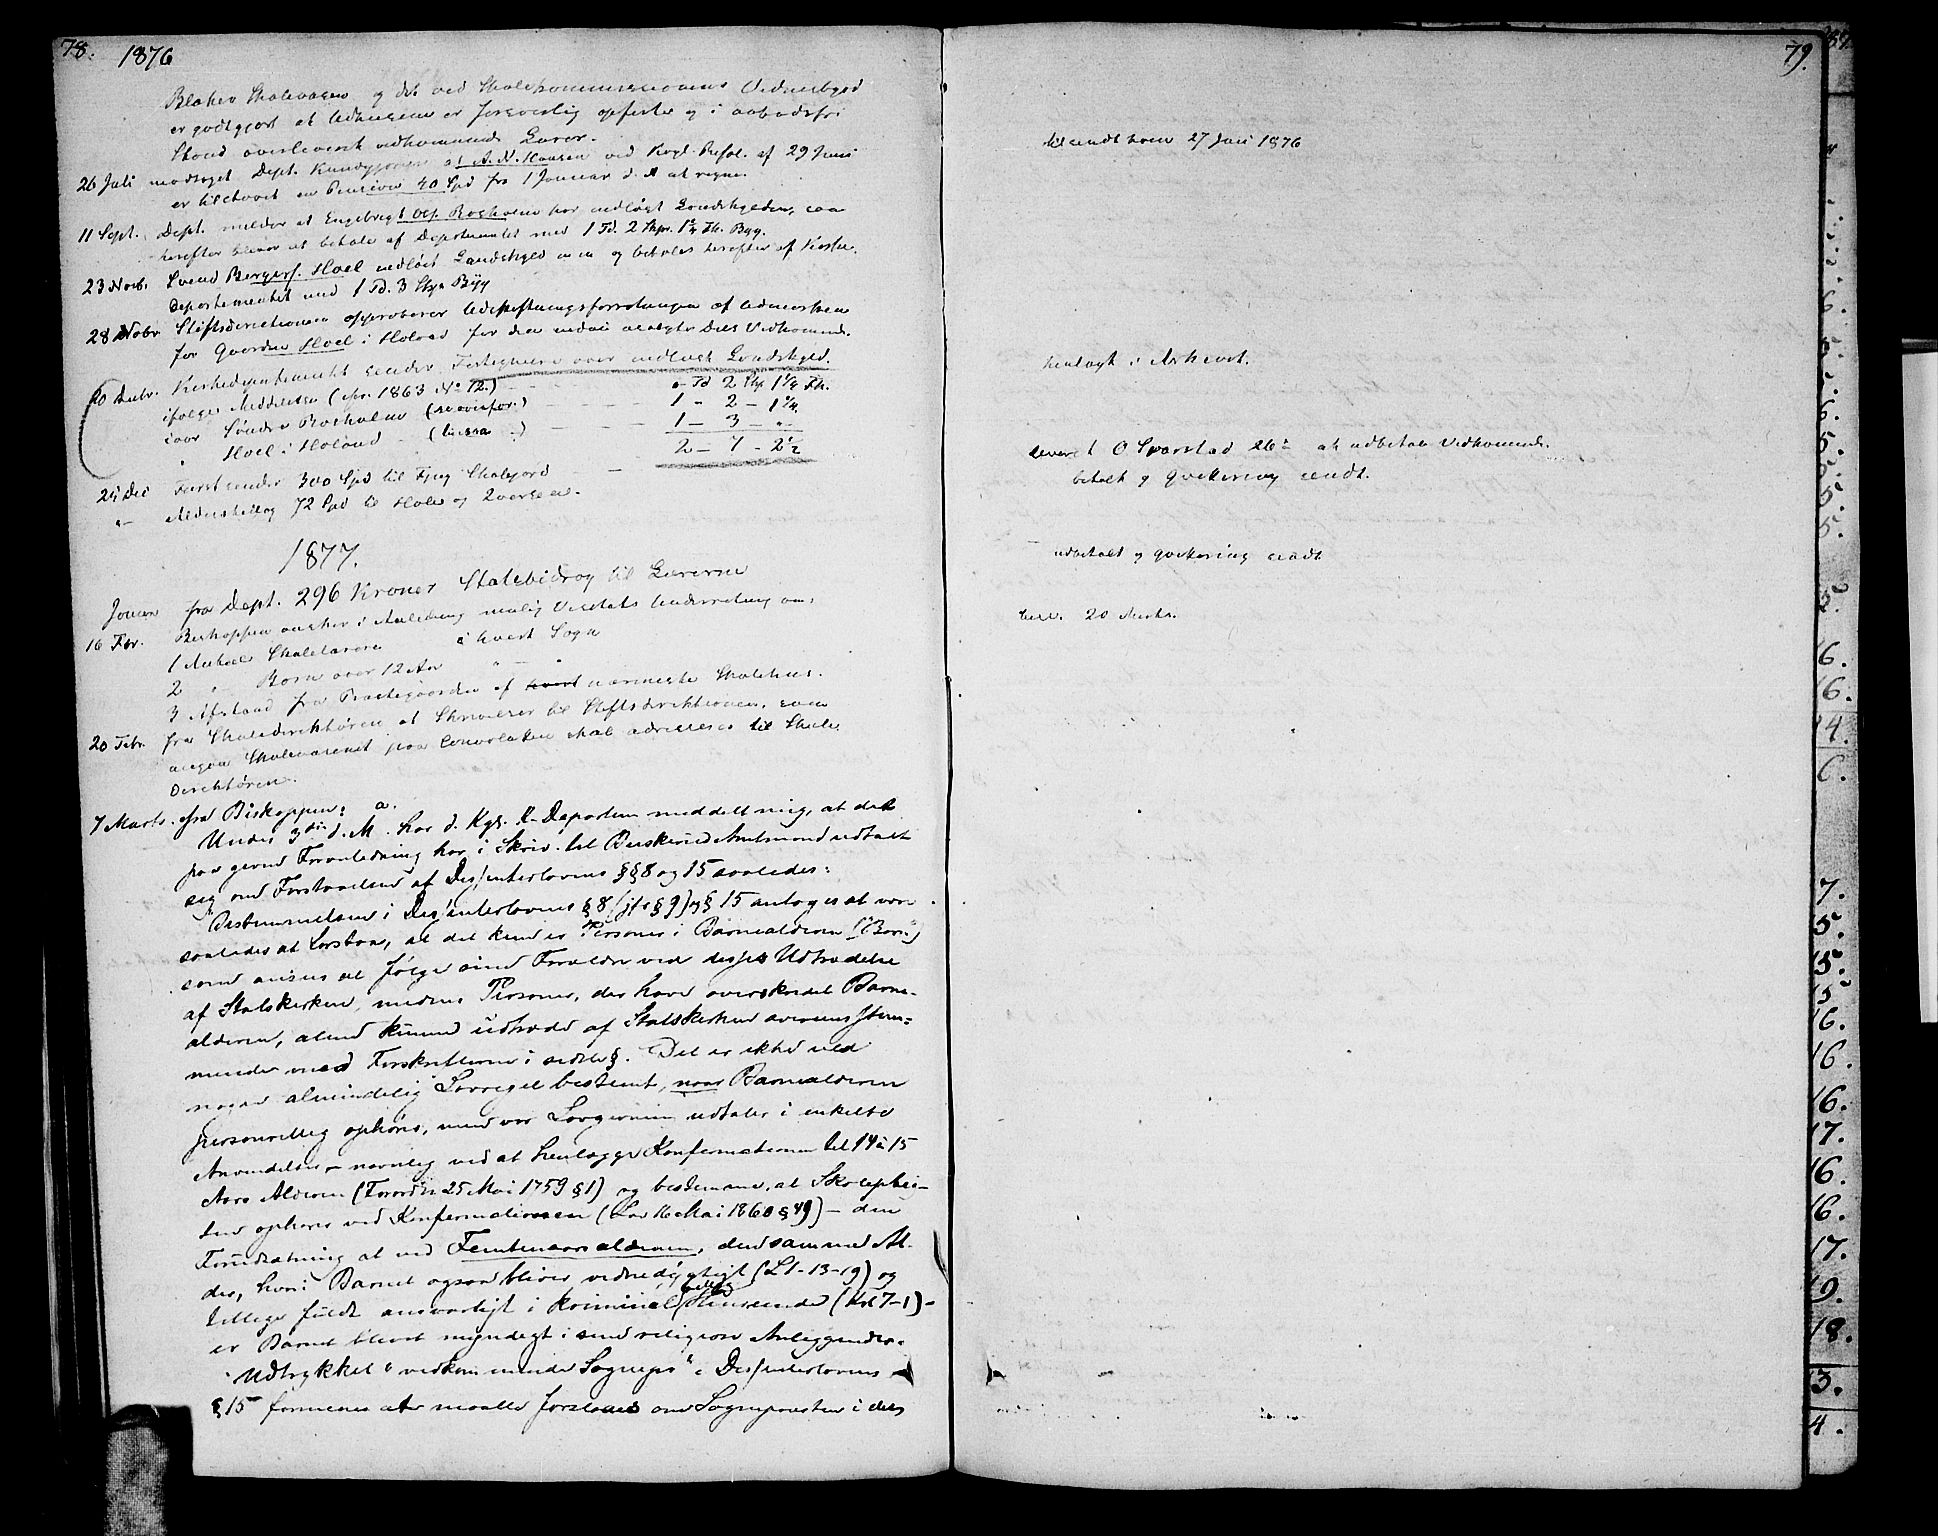 78. 1876
er godtgjort at Udhusene er forsvarlig opførte og i aabodsfri
Stand overleveret vedkommende Lærer.
26 Juli modtaget Dept. Kundgjørelse at A. N. Hansen ved Kngl. Resol. af 29 Juni
er tilstaaet en Pension 40 Spd fra 1 Januar d. A at regne.
11 Sept. Dept. melder at Engebregt Ols. Rosholm har indløst Landskylden, som
herefter bliver at betale af Departementet med 1 Td. 2 Skpr. 1¼ Fk. Byg.
23 Novb. Svend Bergers. Hoel indløst Landskyld og betales herefter af Kirke
Departementet med 1 Td. 3 Skpr Byg
28 Novbr Stiftsdirectionen approberer Udskiftningsforretningen af Udmarken
for Gaarden Hoel i Holand for den Vedkomm.
20 Decbr. Kirkedepartementet sender Fortegnelse over indløst Landskyld.
ifølge Meddelelse (1863 No 12.) - Td 2 Skp 1¼ Fk.
Søndre Rosholm 1 - 2 - 1¼
" Hoel i Holand 1 - 3 - "
2 - 7 - 2½
Dec 300 Spd til Fjug Skolejord
72 Spd til
1877.
Januar fra Dept. 296 Kroner Skolebidrag til Lærerne
16 Febr. Biskoppen ønsker i Anledning mulig Visitats Underretning om:
1 Antal Skolelærere i hvert Sogn
2 " Børn over 12 Aar " - "
3 Afstand fra Præstegaarden af hvert nærmeste Skolehus.
20 Febr. fra Skoledirektøren at Skrivelser til Stiftsdirektionen, som
angaa Skolevæsenet paa Convolutten skal adresseres til Skole
Direktøren.
7 Marts. fra Biskoppen: a.
Under 3die d. M. har d. Kgl. K-Departem meddelt mig, at det
paa given Foranledning har i Skriv. til Buskerud Amtmand udtalt
sig om Forstaaelsen af Dissenterlovens §§8 og 15 saaledes:
"Bestemmelsen i Dissenterlovens §8 (jfr §9) og §15 antages at være
saaledes at forstaa, at det kun er Personer i Barnealderen ("Børn")
som ansees at følge sine Forældre ved disses Udtrædelse
af Statskirken, medens Personer, der have overskredet Barne-
alderen, alene kunne udtræde af Statskirken overensstem=
mende med Forskrifterne i sidste §. Det er ikke ved
nogen almindelig Lovregel bestemt, naar Barnealderen
personellig ophører, men vor Lovgivning udtaler i enkelte
Anvendelser - navnlig ved at henlægge Konfirmationen til 14 à 15
Aars Alderen (Forordn 25 Mai 1759 §1) og bestemme, at Skolepligten
ophører ved Konfirmationen (Lov 16 Mai 1860 §49) - den
Forudsætning at ved Femtenaarsalderen, den samme Al-
der, hvori Barnet ogsaa bliver vidnedygtigt (L 1-13-19) og
tillige fuldt ansvarligt i kriminel Henseende (Krl 7-1) -
er Barnet blevet myndigt i sine religiøse Anliggender.
Udtrykket "vedkommende Sognepr" i Dissenterlovens
§15 formenes at maatte forstaaes om Sognepræsten i det
79.
tilsendt ham 27 Juli 1876
henlagt i Arkivet.
leveret O Sparstad at udbetale Vedkomm.
betalt og Qvittering sendt.
udbetalt og Qvittering sendt
besv. 20 Marts.